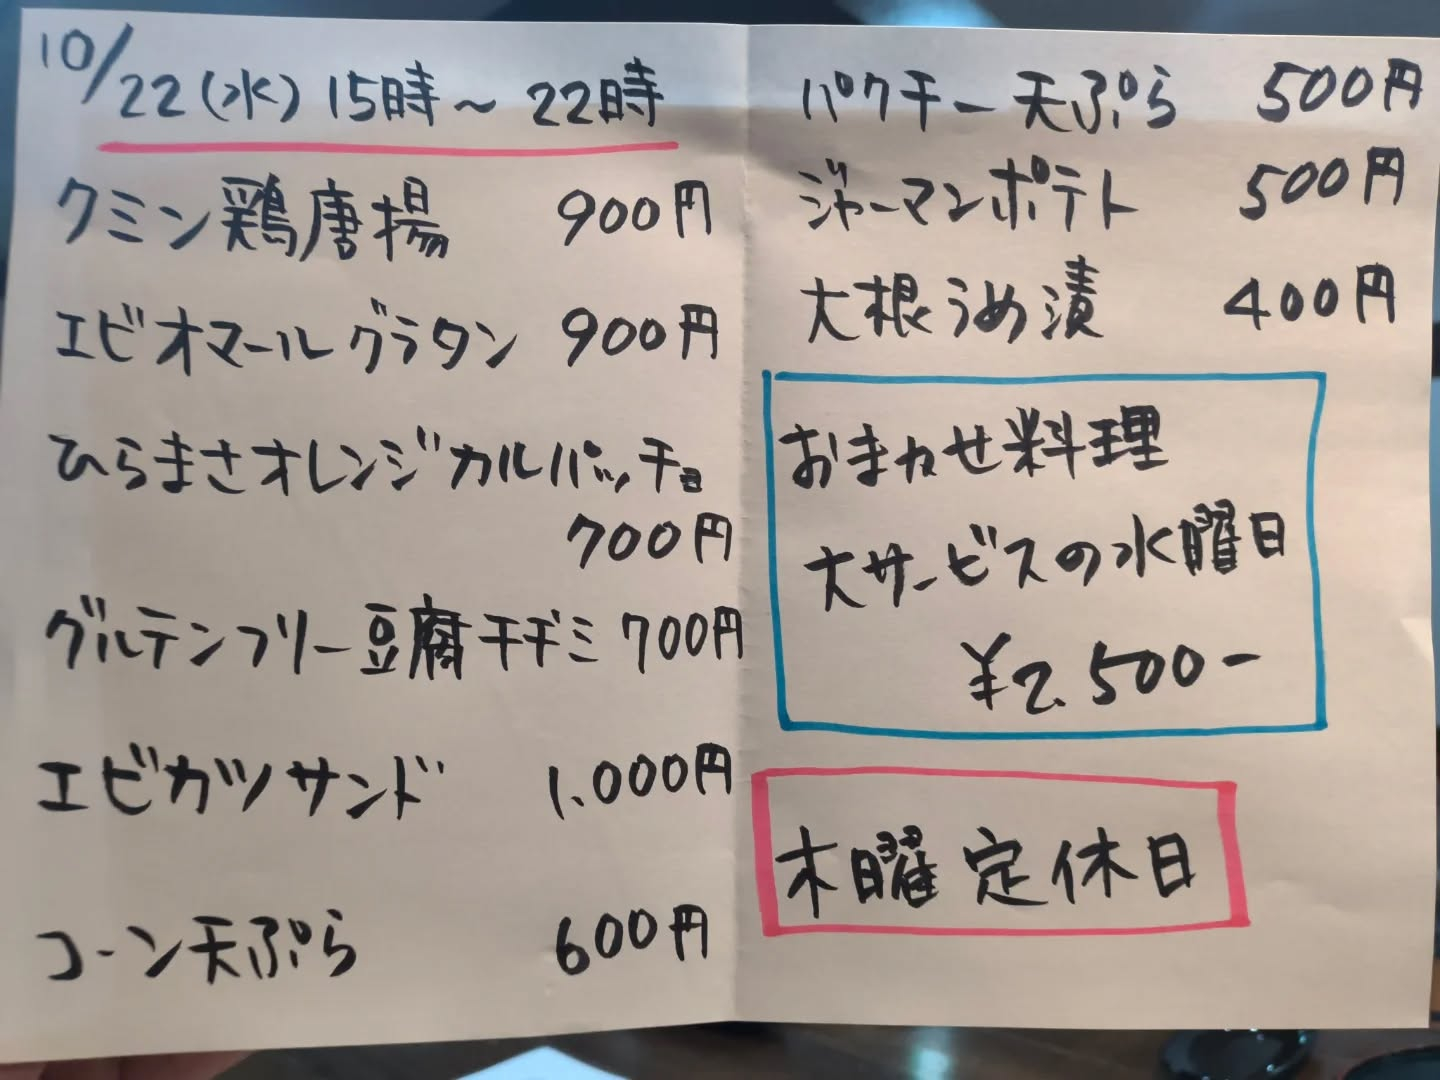 10/22(水) 15時～22時
クミン鶏唐揚 900円
エビオマールグラタン 900円
ひらまさオレンジカルパッチョ
700円
グルテンフリー豆腐チヂミ 700円
エビカツサンド 1.000円
コーン天ぷら 600円
パクチー天ぷら 500円
ジャーマンポテト 500円
大根うめ漬 400円
おまかせ料理
大サービスの水曜日
¥2.500-
木曜定休日